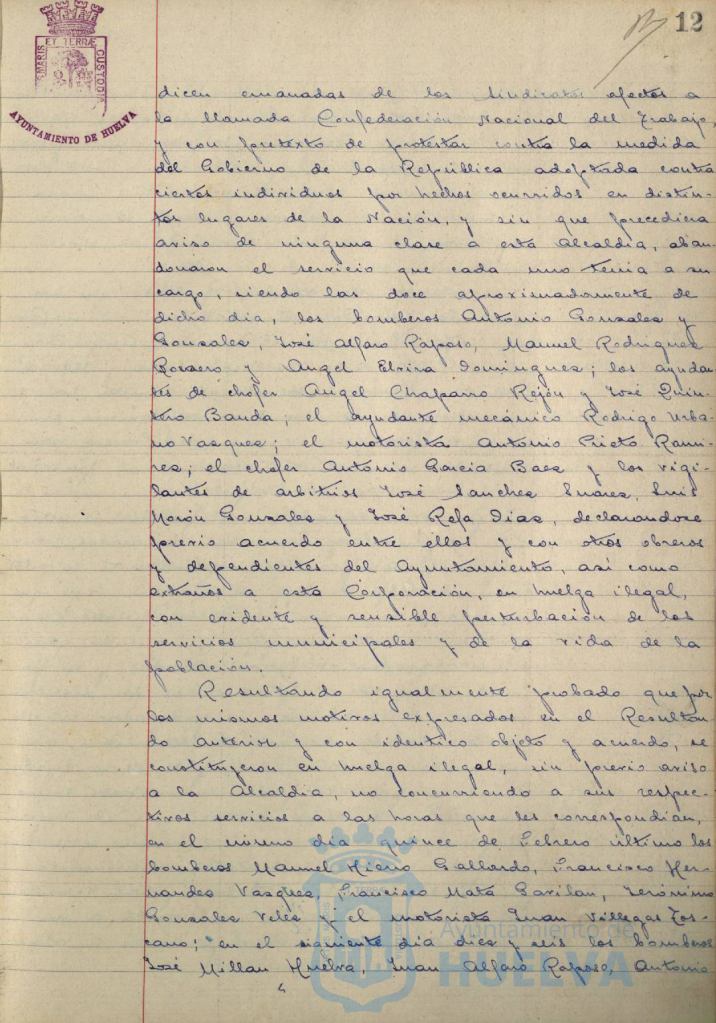 12
PORTUS MARIS ET TERRÆ CUSTODIA
AYUNTAMIENTO DE HUELVA
dicen emanadas de los Sindicatos afectos a
la llamada Confederación Nacional del Trabajo,
y con pretexto de protestar contra la medida
del Gobierno de la República adoptada contra
ciertos individuos por hechos ocurridos en distin-
tos lugares de la Nación, y sin que precediera
aviso de ninguna clase a esta Alcaldia, aban-
donaron el servicio que cada uno tenia a su
cargo, siendo las doce aproximadamente de
dicho dia, los bomberos Antonio Gonzales y
Gonzales, José Alfaro Raposo, Manuel Rodriguez
Romero y Angel Elvira Dominguez; los ayudan-
tes de chofer Angel Chaparro Rejón y José Quin-
tero Banda; el ayudante mecánico Rodrigo Urba-
no Vasquez; el motorista Antonio Prieto Rami-
rez; el chofer Antonio Garcia Baez y los vigi-
lantes de arbitrios José Sanchez Suarez, Luis
Morón Gonzales y José Refa Dias, declarandose
previo acuerdo entre ellos y con otros obreros
y dependientes del Ayuntamiento, así como
extraños a esta Corporación, en huelga ilegal,
con evidente y sensible perturbación de los
servicios municipales y de la vida de la
población.
Resultando igualmente probado que por
los mismos motivos expresados en el Resultan-
do anterior y con identico objeto y acuerdo, se
constituyeron en huelga ilegal, sin previo aviso
a la Alcaldia, no concurriendo a sus respec-
tivos servicios a las horas que les correspondian,
en el mismo dia quince de Febrero último los
bomberos Manuel Hierro Gallardo, Francisco Her-
nandez Vasquez, Francisco Mata Gavilan, Jerónimo
Gonzales Velez y el motorista Juan Villegas Tos-
cano; en el siguiente dia diez y seis los bomberos
José Millan Huelva, Juan Alfaro Raposo, Antonio
Ayuntamiento de
HUELVA